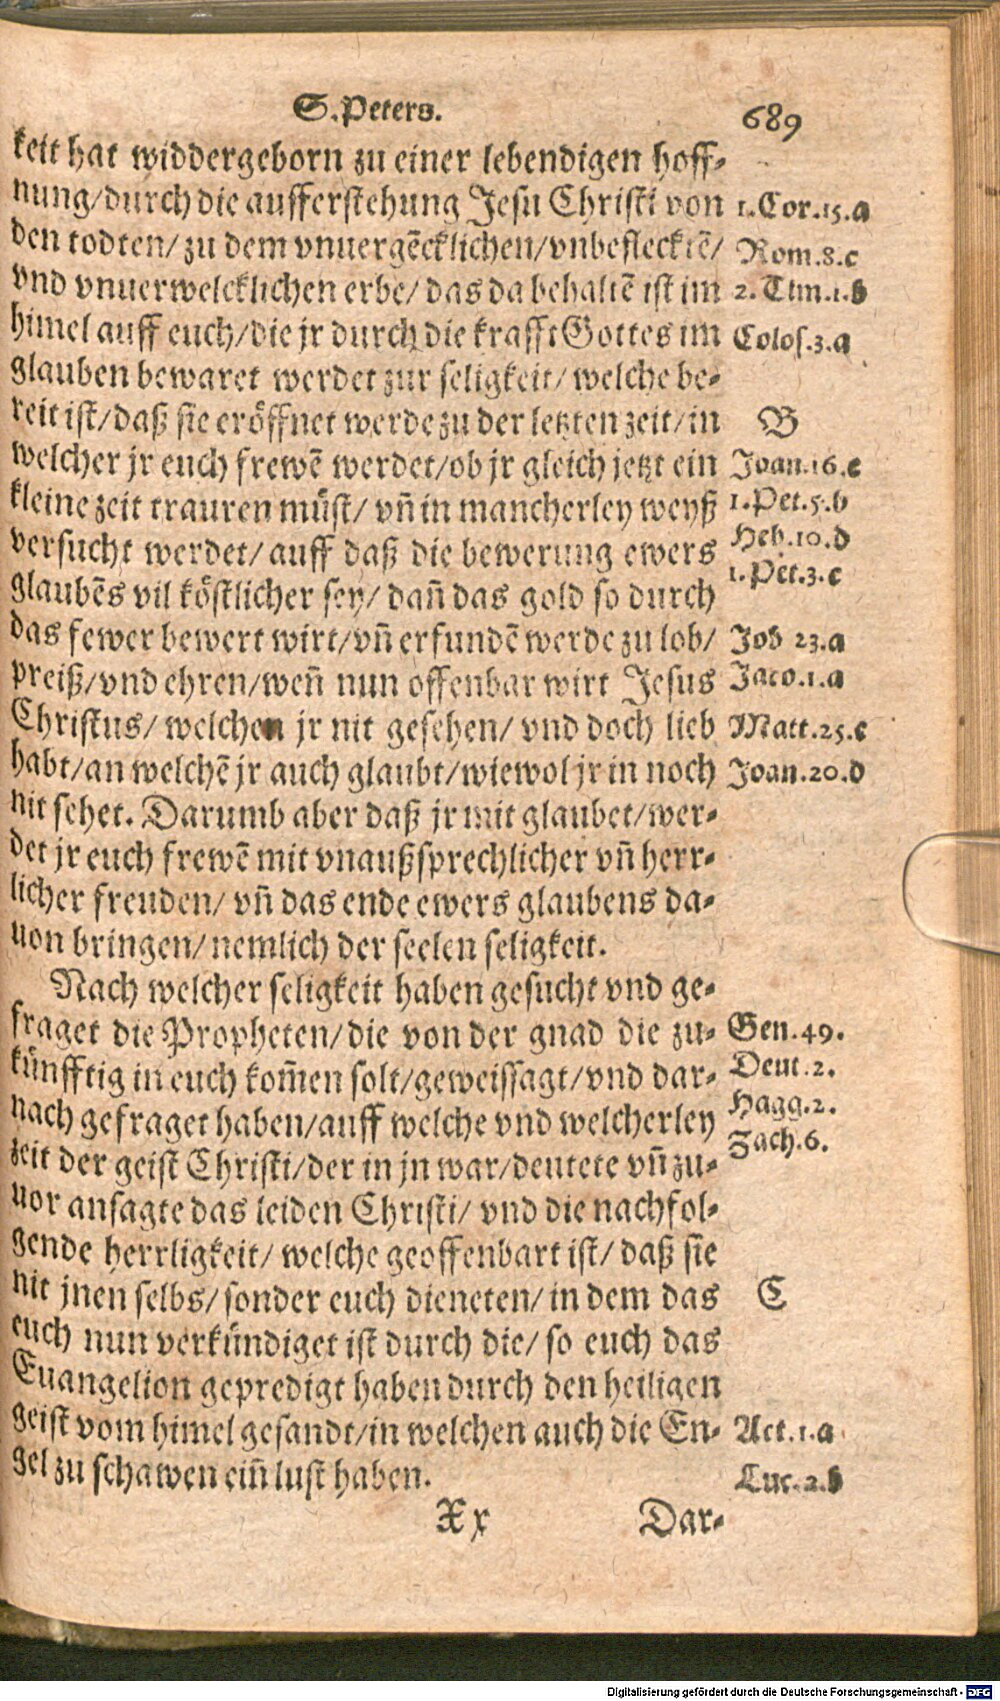 S. Peters. 689
keit hat widdergeborn zu einer lebendigen hoff-
nung/durch die aufferstehung Jesu Christi von 1. Cor. 15. a
den todten/ zu dem vnuergẽcklichen/vnbefleckẽ/ Rom. 8. c
vnd vnuerwelcklichen erbe/ das da behaltẽ ist im 2. Tim. 1. b
himel auff euch/die jr durch die krafft Gottes im Colos. 3. a
glauben bewaret werdet zur seligkeit/ welche be-
reit ist/daß sie eröffnet werde zu der letzten zeit/in B
welcher jr euch frewẽ werdet/ob jr gleich jetzt ein Joan. 16. c
kleine zeit trauren müst/ vñ in mancherley weyß 1. Pet. 5. b
versucht werdet/ auff daß die bewerung ewers Heb. 10. d
glaubẽs vil köstlicher sey/ dañ das gold so durch 1. Pet. 3. c
das fewer bewert wirt/vñ erfundẽ werde zu lob/ Job 23. a
preiß/vnd ehren/weñ nun offenbar wirt Jesus Jaco. 1. a
Christus/ welchen jr nit gesehen/ vnd doch lieb Matt. 25. c
habt/an welchẽ jr auch glaubt/wiewol jr in noch Joan. 20. d
nit sehet. Darumb aber daß jr mit glaubet/wer-
det jr euch frewẽ mit vnaußsprechlicher vñ herr-
licher freuden/ vñ das ende ewers glaubens da-
uon bringen/nemlich der seelen seligkeit.
Nach welcher seligkeit haben gesucht vnd ge-
fraget die Propheten/die von der gnad die zu- Gen. 49.
künfftig in euch kom̃en solt/geweissagt/vnd dar- Deut. 2.
nach gefraget haben/auff welche vnd welcherley Hagg. 2.
zeit der geist Christi/der in jn war/deutete vñ zu- Zach. 6.
uor ansagte das leiden Christi/ vnd die nachfol-
gende herrligkeit/ welche geoffenbart ist/ daß sie
nit jnen selbs/ sonder euch dieneten/ in dem das C
euch nun verkündiget ist durch die/ so euch das
Euangelion gepredigt haben durch den heiligen
geist vom himel gesandt/in welchen auch die En- Act. 1. a
gel zu schawen eiñ lust haben. Luc. 2. b
Xx Dar-
Digitalisierung gefördert durch die Deutsche Forschungsgemeinschaft - DFG